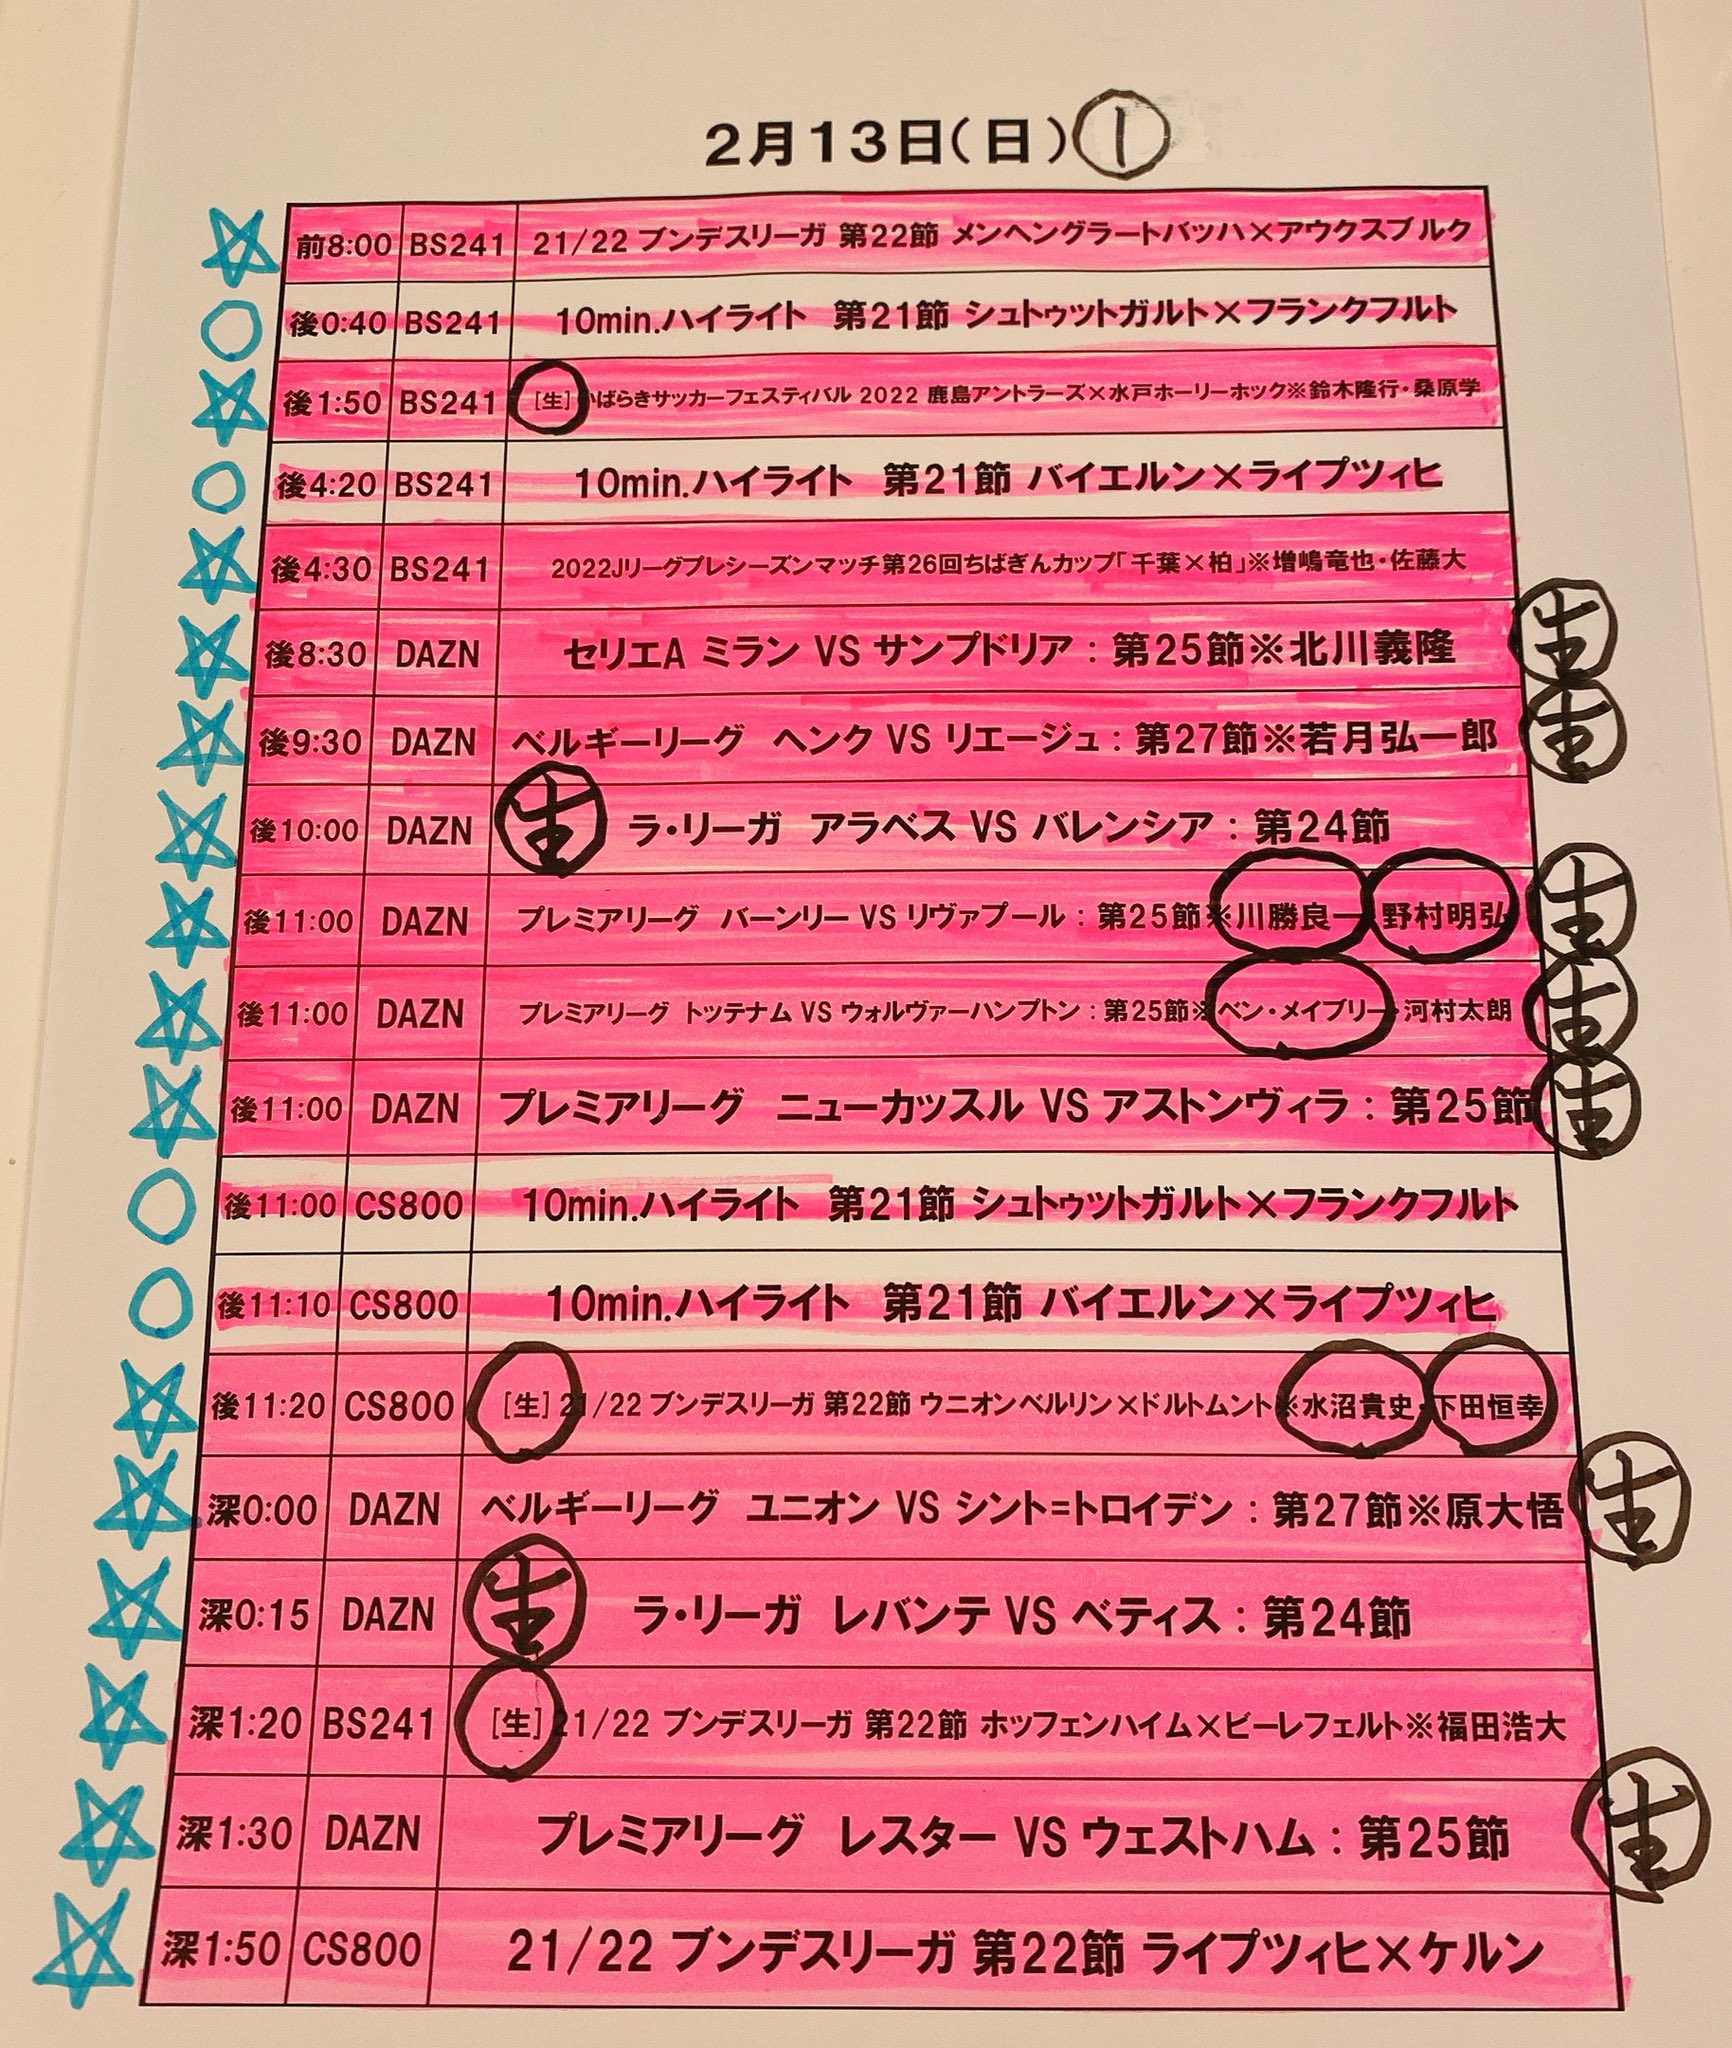 2月13日(日) ①
前8:00 BS241 21/22 ブンデスリーガ 第22節 メンヘングラートバッハ×アウクスブルク
後0:40 BS241 10min.ハイライト 第21節 シュトゥットガルト×フランクフルト
後1:50 BS241 [生] いばらきサッカーフェスティバル 2022 鹿島アントラーズ×水戸ホーリーホック※鈴木隆行・桑原学
後4:20 BS241 10min.ハイライト 第21節 バイエルン×ライプツィヒ
後4:30 BS241 2022Jリーグプレシーズンマッチ第26回ちばぎんカップ「千葉×柏」※増嶋竜也・佐藤大
後8:30 DAZN セリエA ミラン VS サンプドリア : 第25節※北川義隆 生
後9:30 DAZN ベルギーリーグ ヘンク VS リエージュ : 第27節※若月弘一郎 生
後10:00 DAZN 生 ラ・リーガ アラベス VS バレンシア : 第24節
後11:00 DAZN プレミアリーグ バーンリー VS リヴァプール : 第25節※川勝良一 野村明弘 生
後11:00 DAZN プレミアリーグ トッテナム VS ウォルヴァーハンプトン : 第25節※ベン・メイブリー・河村太朗 生
後11:00 DAZN プレミアリーグ ニューカッスル VS アストンヴィラ : 第25節 生
後11:00 CS800 10min.ハイライト 第21節 シュトゥットガルト×フランクフルト
後11:10 CS800 10min.ハイライト 第21節 バイエルン×ライプツィヒ
後11:20 CS800 [生] 21/22 ブンデスリーガ 第22節 ウニオンベルリン×ドルトムント※水沼貴史・下田恒幸
深0:00 DAZN ベルギーリーグ ユニオン VS シント=トロイデン : 第27節※原大悟 生
深0:15 DAZN 生 ラ・リーガ レバンテ VS ベティス : 第24節
深1:20 BS241 [生] 21/22 ブンデスリーガ 第22節 ホッフェンハイム×ビーレフェルト※福田浩大
深1:30 DAZN プレミアリーグ レスター VS ウェストハム : 第25節 生
深1:50 CS800 21/22 ブンデスリーガ 第22節 ライプツィヒ×ケルン